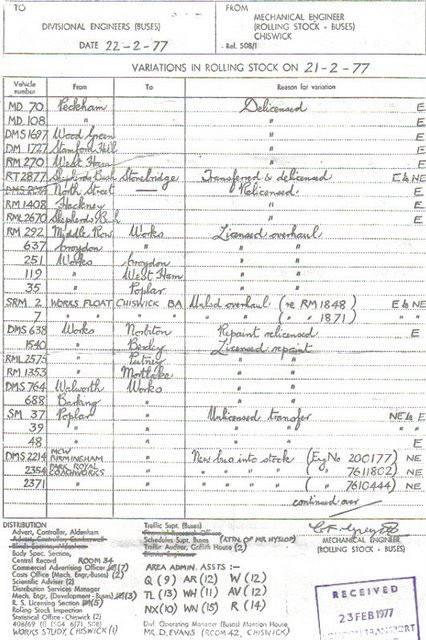 TO
FROM
DIVISIONAL ENGINEERS (BUSES)
MECHANICAL ENGINEER
(ROLLING STOCK - BUSES)
CHISWICK
DATE 22-2-77
Rel. 508/1
VARIATIONS IN ROLLING STOCK ON 21-2-77
Vehicle number From To Reason for variation
MD. 70 Peckham Delicensed E
MD. 108 " " E
DMS 1697 Wood Green " E
DM 1727 Stamford Hill " E
RM 270 West Ham " E
RT 2877 Shepherds Bush Stonebridge Transferred & delicensed E & NE
North Street — Relicensed. E
RM 1408 Hackney " E
RML 2670 Shepherds Bush " E
RM 292 Middle Row Works Licensed overhaul
637 Croydon " "
251 Works Croydon "
119 " West Ham "
35 " Poplar "
SRM 2 WORKS FLOAT CHISWICK BA Unlsd overhaul (re RM 1848) E & NE
7 " " " " ( " " 1871) " "
DMS 638 Works Norbiton Repaint relicensed E
1540 " Bexley Licensed repaint
RML 2575 " Putney "
RM 1353 " Mortlake "
DMS 764 Walworth Works "
688 Barking " "
SM 37 Poplar " Unlicensed transfer NE & E
39 " " " " "
48 " " " " E
DMS 2214 MCW BIRMINGHAM " New bus into stock (Eng No 200177) NE
2354 PARK ROYAL COACHWORKS " " " " " ( " " 7611802) NE
2371 " " " " " " ( " " 7610444) NE
continued over
DISTRIBUTION
Advert. Controller, Aldenham
Body Spec. Section,
Central Record ROOM 34
Commercial Advertising Officer (7)
Costs Office (Mech. Engr.-Buses) (2)
Scientific Adviser (2)
Distribution Services Manager
Mech. Engr. (Development-Buses) (3)
R. S. Licensing Section (5)
Rolling Stock Inspection
Statistical Office - Chiswick (2)
WORKS STUDY, CHISWICK (1)
Traffic Supt. (Buses)
Schedules Supt. Buses (ATTN. OF MR HYSLOP)
Traffic Auditor, Griffith House (2)
AREA ADMIN. ASSTS :-
Q (9) AR (12) W (12)
TL (13) WH (11) AV (12)
NX (10) WN (15) R (14)
Divl. Operating Manager (Buses) Mansion House
MR. D. EVANS (ROOM 42, CHISWICK)
MECHANICAL ENGINEER
(ROLLING STOCK - BUSES)
RECEIVED
23 FEB 1977
LONDON TRANSPORT